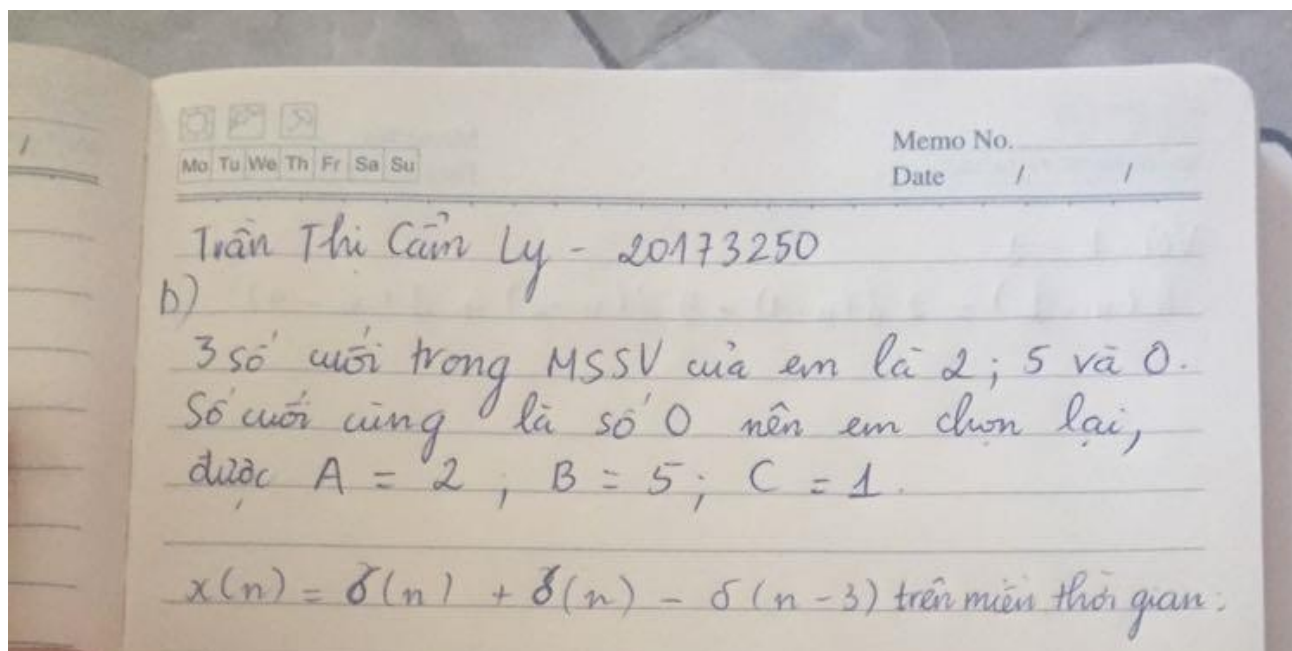 /
Mo Tu We Th Fr Sa Su
Memo No.
Date / /
Trần Thị Cẩm Ly - 20173250
b)
3 số cuối trong MSSV của em là 2; 5 và 0.
Số cuối cùng là số 0 nên em chọn lại,
được A = 2 ; B = 5; C = 1.
x(n) = δ(n) + δ(n) - δ(n-3) trên miền thời gian: